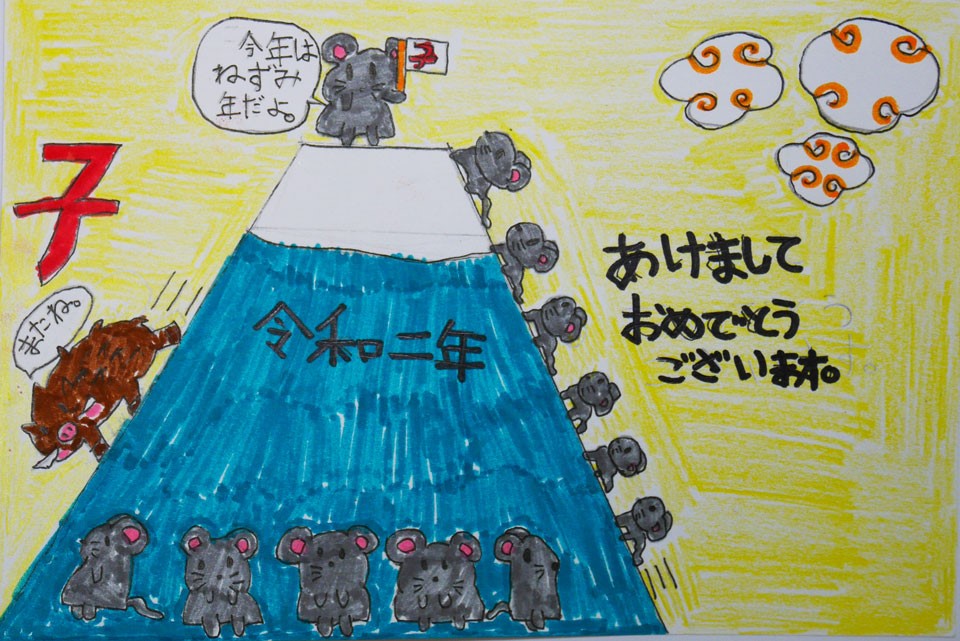 今年は
ねずみ
年だよ。
子
子
またね。
令和二年
あけまして
おめでとう
ございます。